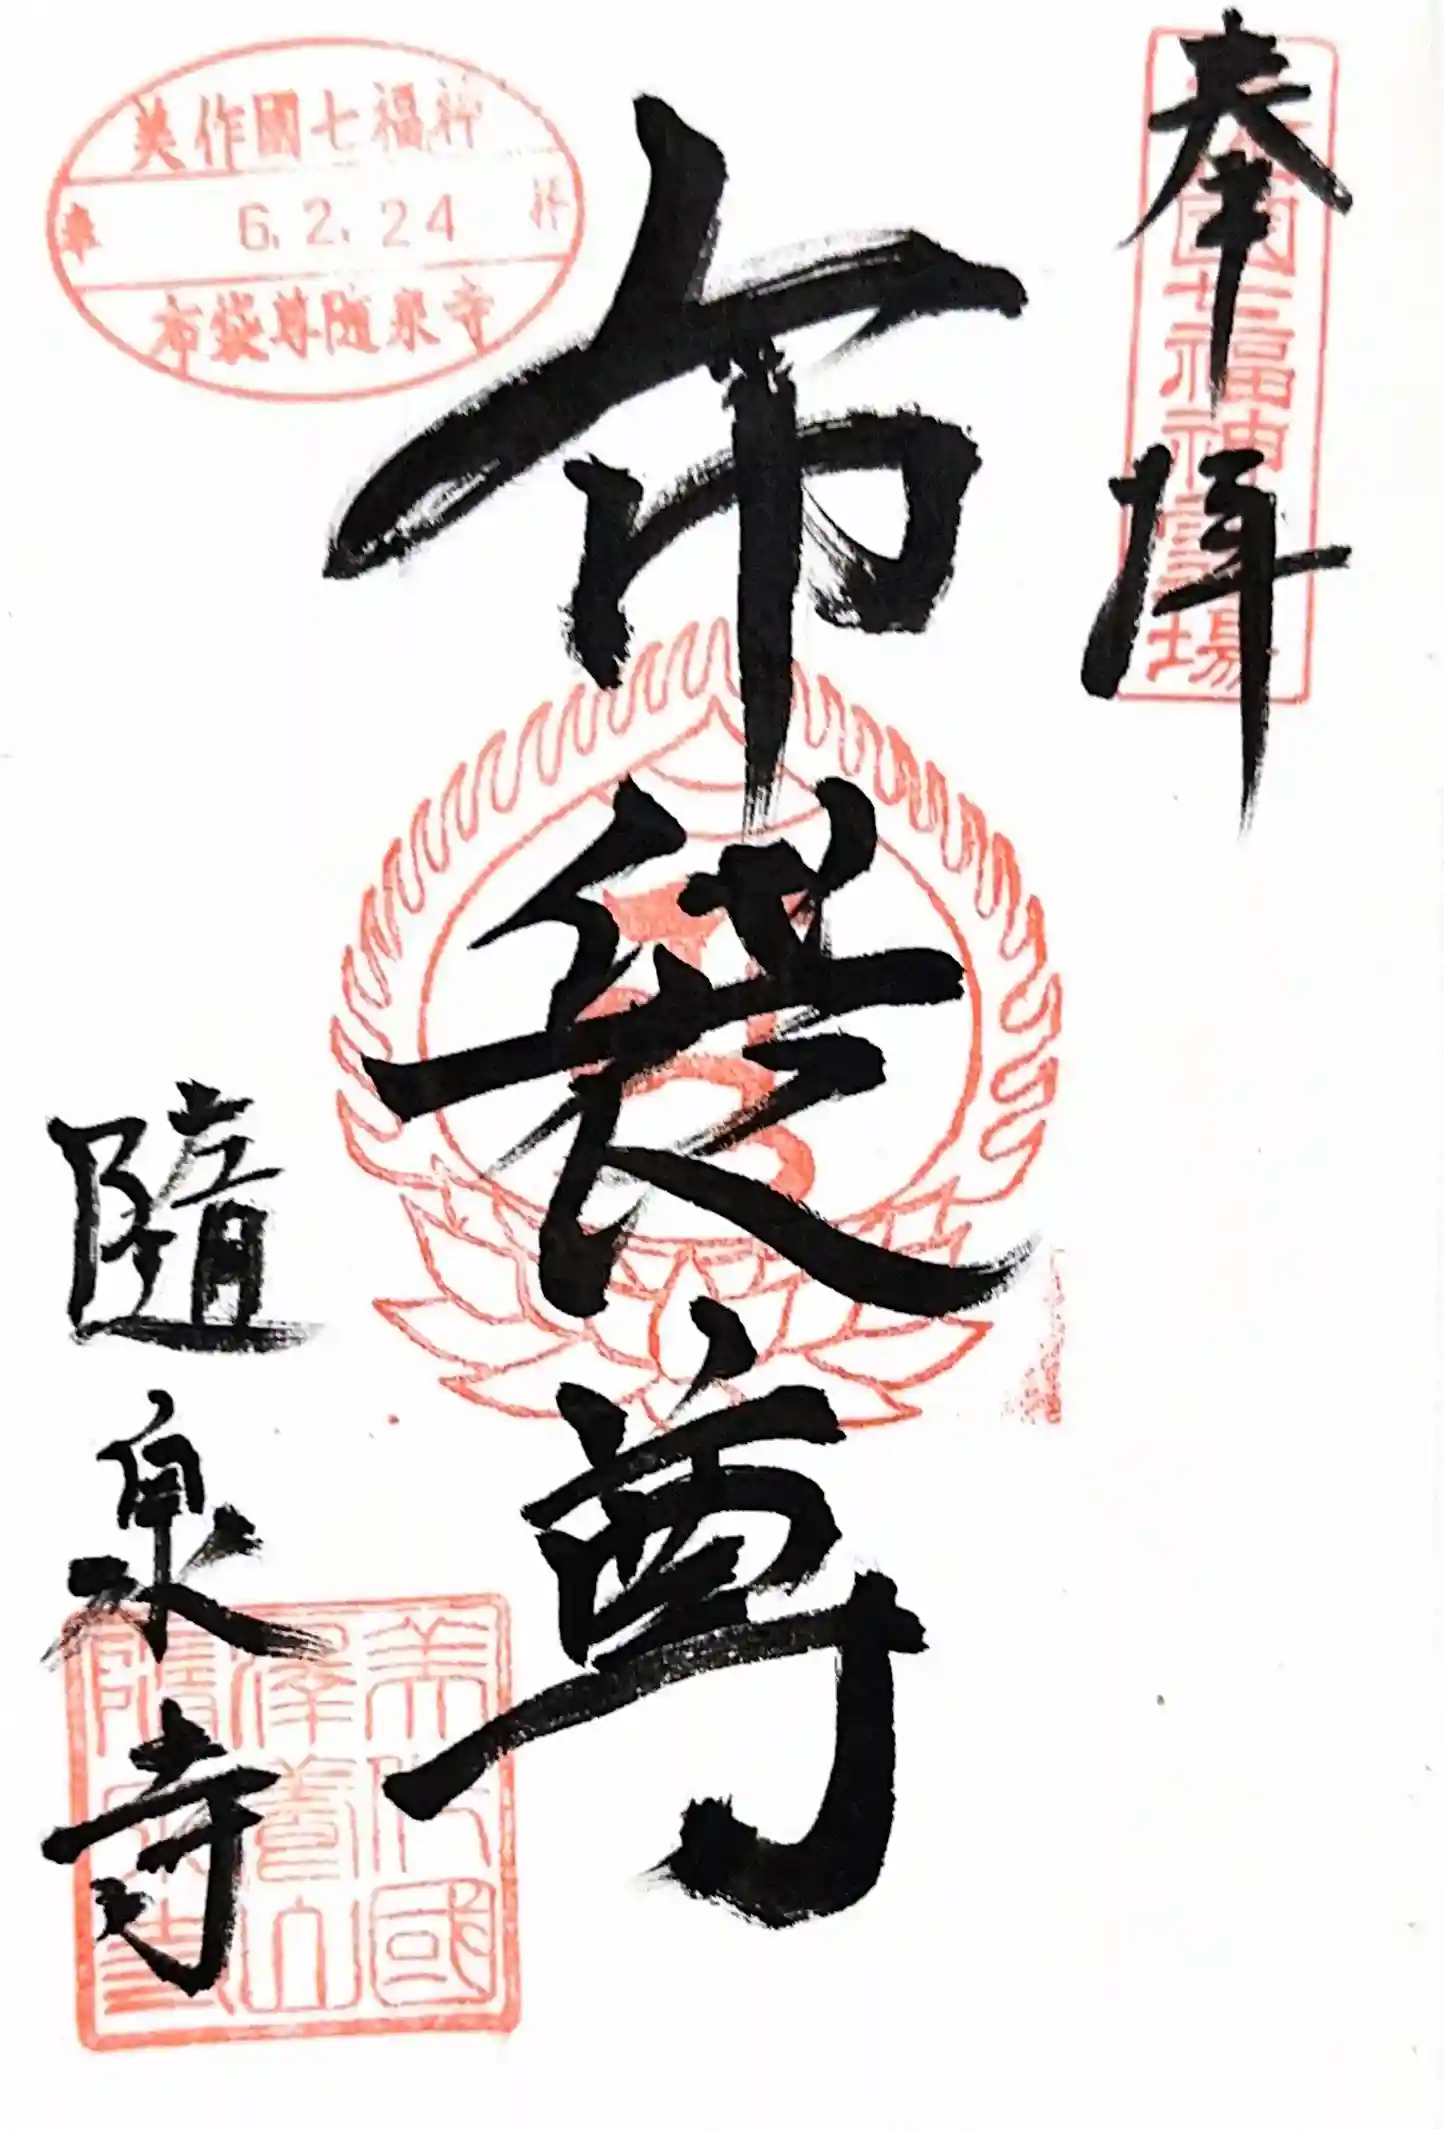 奉拝
美作國七福神霊場
布袋尊
美作國七福神
奉 6.2.24 拝
布袋尊随泉寺
隨泉寺